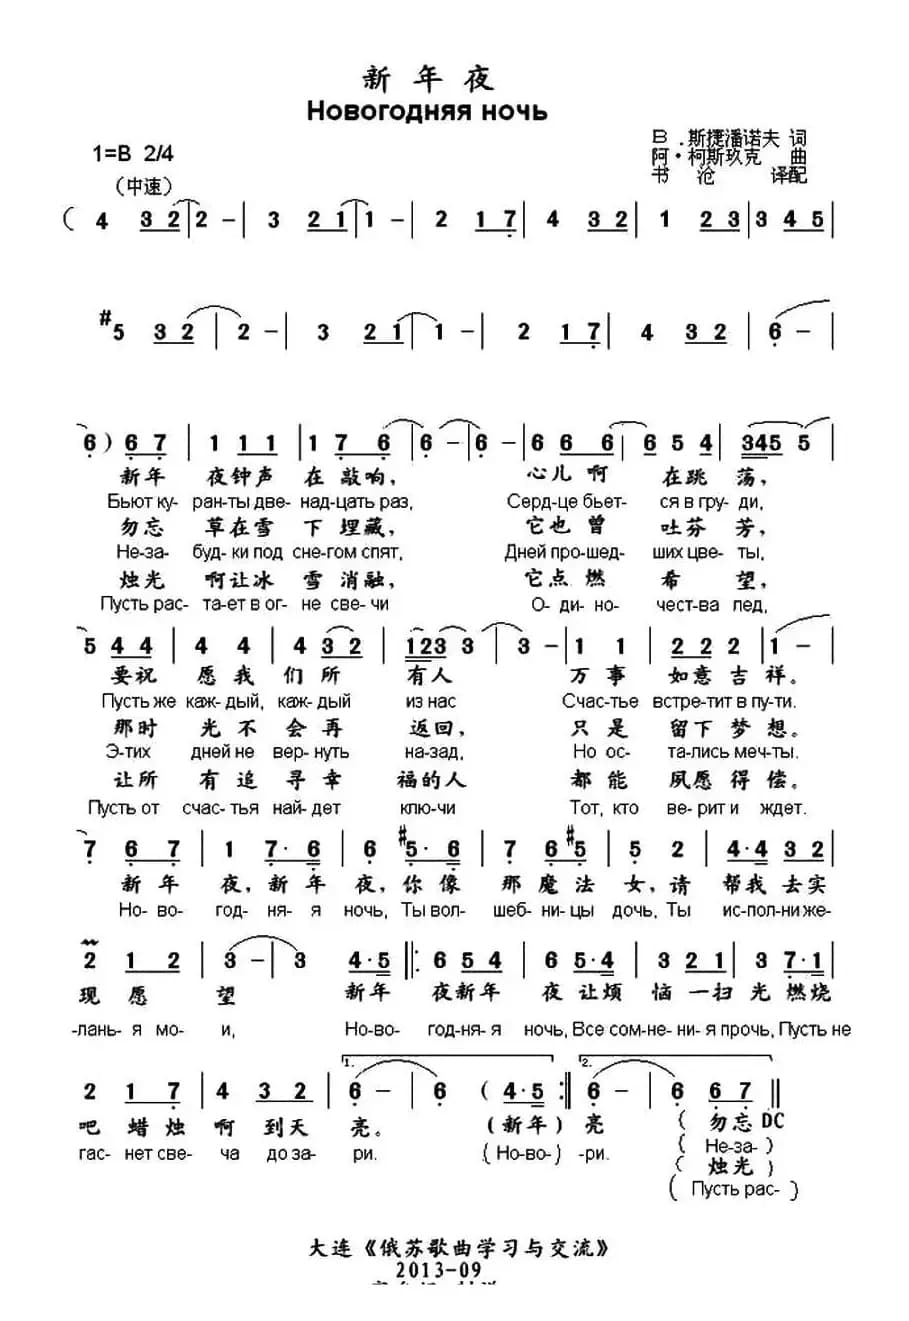 新年夜
Новогодняя ночь
1=B 2/4
B .斯捷潘诺夫 词
(中速)
阿·柯斯玖克 曲
书沧 译配
( 4 3 2 | 2 - | 3 2 1 | 1 - | 2 1 7 | 4 3 2 | 1 2 3 | 3 4 5 |
#5 3 2 | 2 - | 3 2 1 | 1 - | 2 1 7 | 4 3 2 | 6 - |
6 ) 6 7 | 1 1 1 | 1 7 6 | 6 - | 6 - | 6 6 6 | 6 5 4 | 345 5 |
新年 夜钟声 在 敲响, 心儿 啊 在跳 荡,
Бьют ку- ран-ты две- над-цать раз, Серд-це бьет- ся в гру- ди,
勿忘 草在雪 下 埋藏, 它也 曾 吐芬 芳,
Не-за- буд-ки под сне-гом спят, Дней про-шед- ших цве-ты,
烛光 啊让冰 雪 消融, 它点 燃 希 望,
Пусть рас- та-ет в ог- не све-чи О- ди-но- чест-ва лед,
5 4 4 | 4 4 | 4 3 2 | 123 3 | 3 - | 1 1 | 2 2 2 | 1 - |
要祝 愿我 们所 有人 万事 如意吉祥。
Пусть же каж-дый, каж-дый из нас Счасть-е встре-тит в пу-ти.
那时 光不 会再 返回, 只是 留下梦想.
Э-тих дней не вер-нуть на-зад, Но ос- та-лись меч-ты.
让所 有追 寻幸 福的人 都能 夙愿得偿。
Пусть от счас-тья най-дет клю-чи Тот, кто ве-рит и ждет.
7 6 7 | 1 7· 6 | 6 #5· 6 | 7 6 #5 | 5 2 | 4·4 3 2 |
新年 夜,新年 夜,你像 那魔法 女,请 帮我去实
Но-во- год-ня-я ночь, Ты вол- шеб-ни-цы дочь, Ты ис-пол-ни же-
2 1 2 | 3 - | 3 4·5 |: 6 5 4 | 6 5·4 | 3 2 1 | 3 7·1 |
现愿 望 新年 夜新年 夜让烦 恼一扫光燃烧
-лань-я мо- и, Но-во- год-ня-я ночь, Все сом-не-ни-я прочь, Пусть не
1. 2.
2 1 7 | 4 3 2 | 6 - | 6 ( 4·5 :|| 6 - | 6 6 7 ||
吧蜡烛 啊到天 亮。 (新年) 亮 ( 勿忘 DC
гас-нет све- ча до за- ри. ( Но-во- ) -ри. ( Не-за- )
( 烛光 )
( Пусть рас- )
大连《俄苏歌曲学习与交流》
2013-09